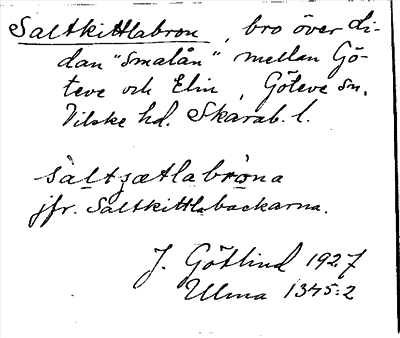 Saltkittlabron, bro över di-
dan "Smalån" mellan Gö-
teve och Elin, Göteve sn.
Vilske hd. Skarab. l.
sàltʒætlabrona
jfr. Saltkittlabackarna.
J. Götlind 1927
Ulma 1345:2